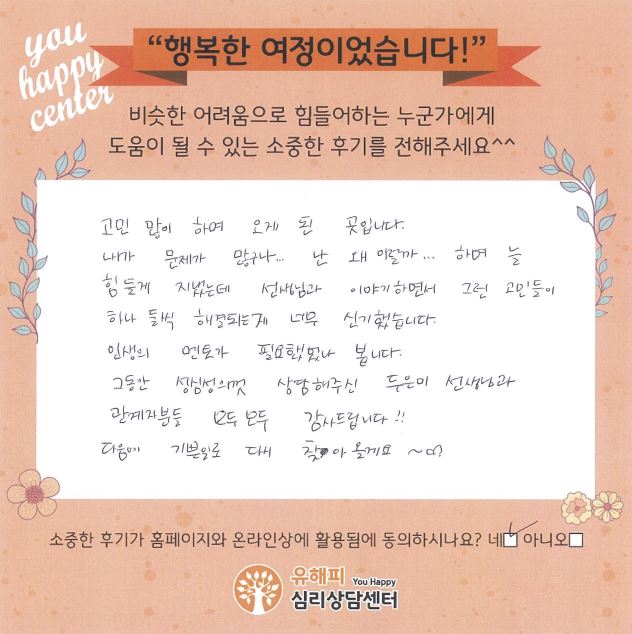 you
happy
center
“행복한 여정이었습니다!”
비슷한 어려움으로 힘들어하는 누군가에게
도움이 될 수 있는 소중한 후기를 전해주세요^^
고민 많이 하며 오게 된 곳입니다.
내가 문제가 많구나... 난 왜 이럴까... 하며 늘
힘들게 지냈는데 선생님과 이야기하면서 그런 고민들이
하나 둘씩 해결되는게 너무 신기했습니다.
인생의 멘토가 필요했었나 봅니다.
그동안 성심성의껏 상담해주신 두은미 선생님과
관계자분들 모두모두 감사드립니다!!
다음에 기쁜일로 다시 찾아 올게요~
소중한 후기가 홈페이지와 온라인상에 활용됨에 동의하시나요? 네 아니오
유해피 You Happy
심리상담센터